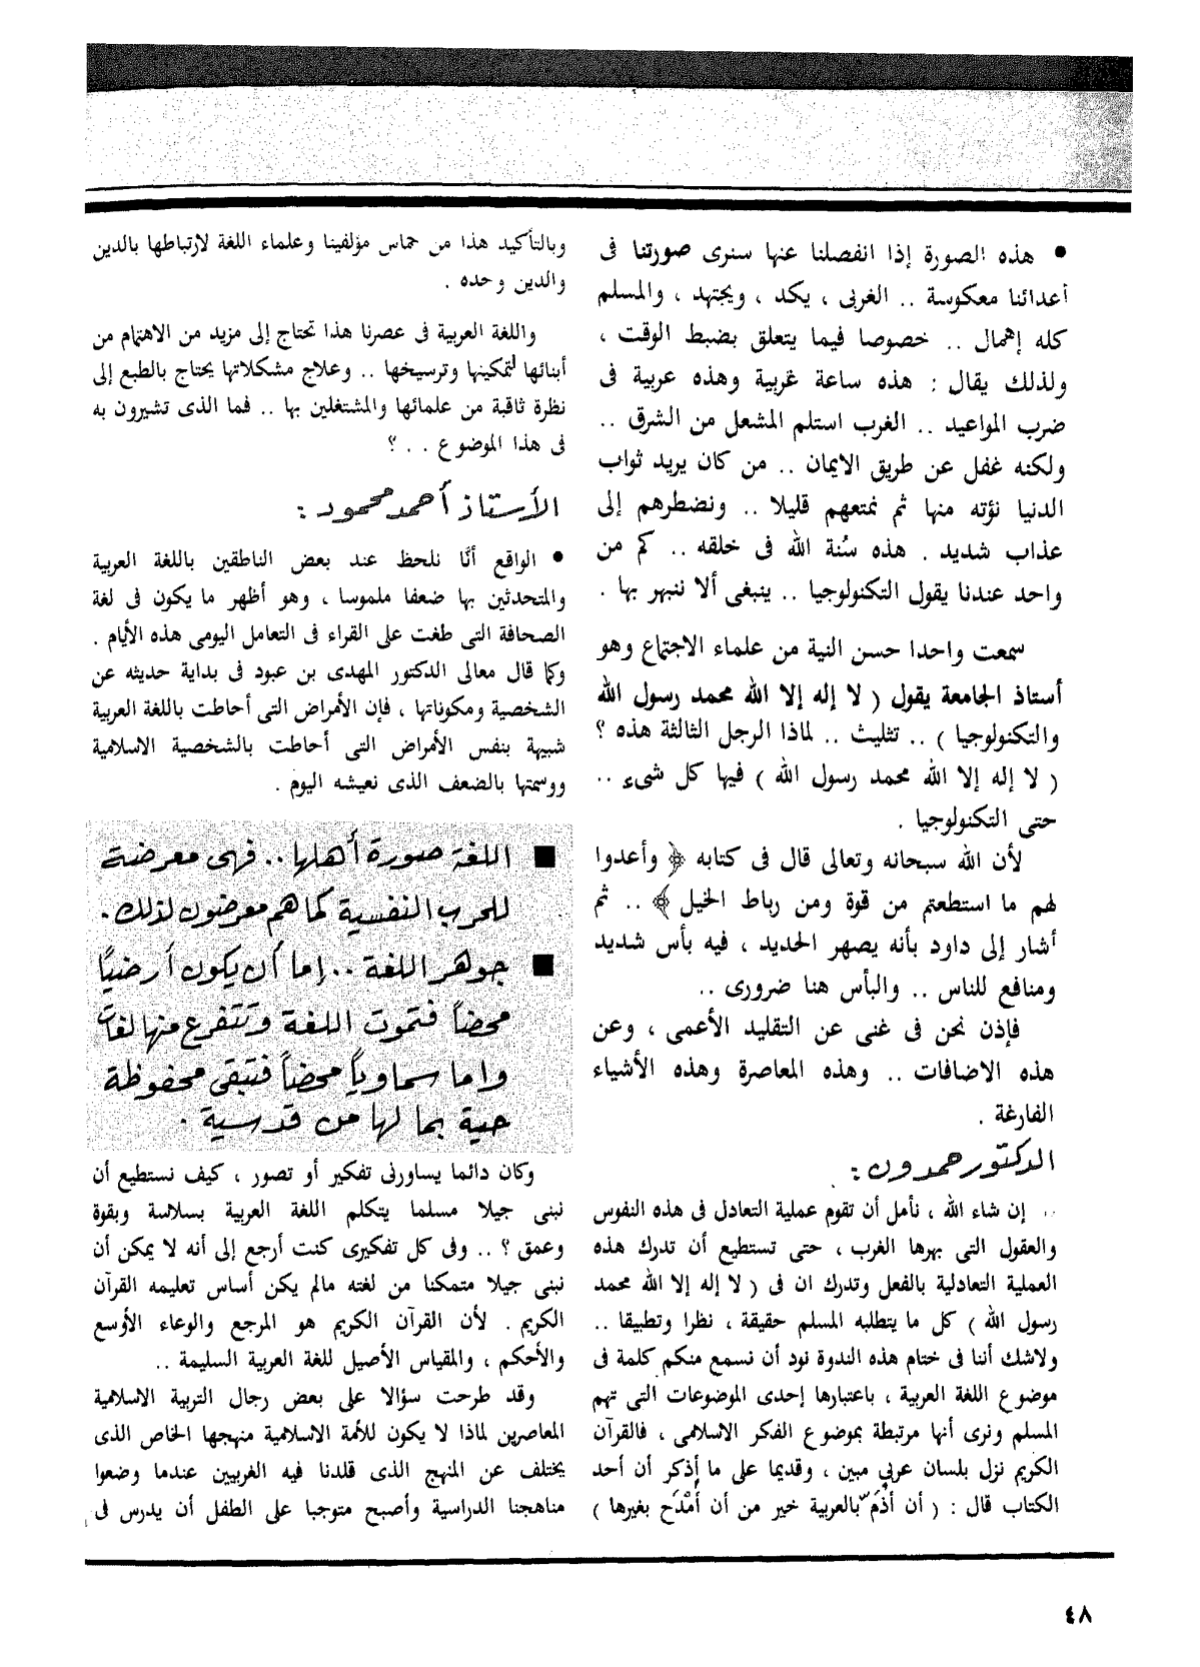 ● هذه الصورة إذا انفصلنا عنها سنرى صورتنا فى
أعدائنا معكوسة .. الغربى ، يكد ، ويجتهد ، والمسلم
كله إهمال .. خصوصا فيما يتعلق بضبط الوقت ،
ولذلك يقال : هذه ساعة غربية وهذه عربية فى
ضرب المواعيد .. الغرب استلم المشعل من الشرق ..
ولكنه غفل عن طريق الايمان .. من كان يريد ثواب
الدنيا نؤته منها ثم نمتعهم قليلا .. ونضطرهم إلى
عذاب شديد . هذه سُنة الله فى خلقه .. كم من
واحد عندنا يقول التكنولوجيا .. ينبغى ألا ننبهر بها .
سمعت واحدا حسن النية من علماء الاجتماع وهو
أستاذ الجامعة يقول ( لا إله إلا الله محمد رسول الله
والتكنولوجيا ) .. تثليث .. لماذا الرجل الثالثة هذه ؟
( لا إله إلا الله محمد رسول الله ) فيها كل شىء ..
حتى التكنولوجيا .
لأن الله سبحانه وتعالى قال فى كتابه ﴿ وأعدوا
لهم ما استطعتم من قوة ومن رباط الخيل ﴾ .. ثم
أشار إلى داود بأنه يصهر الحديد ، فيه بأس شديد
ومنافع للناس .. والبأس هنا ضرورى ..
فإذن نحن فى غنى عن التقليد الأعمى ، وعن
هذه الاضافات .. وهذه المعاصرة وهذه الأشياء
الفارغة .
الدكتور حمدون :
.. إن شاء الله ، نأمل أن تقوم عملية التعادل فى هذه النفوس
والعقول التى بهرها الغرب ، حتى تستطيع أن تدرك هذه
العملية التعادلية بالفعل وتدرك ان فى ( لا إله إلا الله محمد
رسول الله ) كل ما يتطلبه المسلم حقيقة ، نظرا وتطبيقا ..
ولاشك أننا فى ختام هذه الندوة نود أن نسمع منكم كلمة فى
موضوع اللغة العربية ، باعتبارها إحدى الموضوعات التى تهم
المسلم ونرى أنها مرتبطة بموضوع الفكر الاسلامى ، فالقرآن
الكريم نزل بلسان عربي مبين ، وقديما على ما أذكر أن أحد
الكتاب قال : ( أن أذَمّ بالعربية خير من أن أمْدَح بغيرها )
وبالتأكيد هذا من حماس مؤلفينا وعلماء اللغة لارتباطها بالدين
والدين وحده .
واللغة العربية فى عصرنا هذا تحتاج إلى مزيد من الاهتمام من
أبنائها لتمكينها وترسيخها .. وعلاج مشكلاتها يحتاج بالطبع إلى
نظرة ثاقبة من علمائها والمشتغلين بها .. فما الذى تشيرون به
فى هذا الموضوع . . ؟
الأستاذ أحمد محمود :
● الواقع أنَّا نلحظ عند بعض الناطقين باللغة العربية
والمتحدثين بها ضعفا ملموسا ، وهو أظهر ما يكون فى لغة
الصحافة التى طغت على القراء فى التعامل اليومى هذه الأيام .
وكما قال معالى الدكتور المهدى بن عبود فى بداية حديثه عن
الشخصية ومكوناتها ، فإن الأمراض التى أحاطت باللغة العربية
شبيهة بنفس الأمراض التى أحاطت بالشخصية الاسلامية
ووسمتها بالضعف الذى نعيشه اليوم .
■ اللغة صورة أهلها .. فهى معرضة
للحرب النفسية كما هم معرضون لذلك .
■ جوهر اللغة .. إما أن يكون أرضيًا
محضاً فتموت اللغة وتتفرع منها لغات
وإما سماوياً محضاً فتبقى محفوظة
حية بما لها من قدسية .
وكان دائما يساورنى تفكير أو تصور ، كيف نستطيع أن
نبنى جيلا مسلما يتكلم اللغة العربية بسلاسة وبقوة
وعمق ؟ .. وفى كل تفكيرى كنت أرجع إلى أنه لا يمكن أن
نبنى جيلا متمكنا من لغته مالم يكن أساس تعليمه القرآن
الكريم . لأن القرآن الكريم هو المرجع والوعاء الأوسع
والأحكم ، والمقياس الأصيل للغة العربية السليمة ..
وقد طرحت سؤالا على بعض رجال التربية الاسلامية
المعاصرين لماذا لا يكون للأمة الاسلامية منهجها الخاص الذى
يختلف عن المنهج الذى قلدنا فيه الغربيين عندما وضعوا
مناهجنا الدراسية وأصبح متوجبا على الطفل أن يدرس فى
٤٨